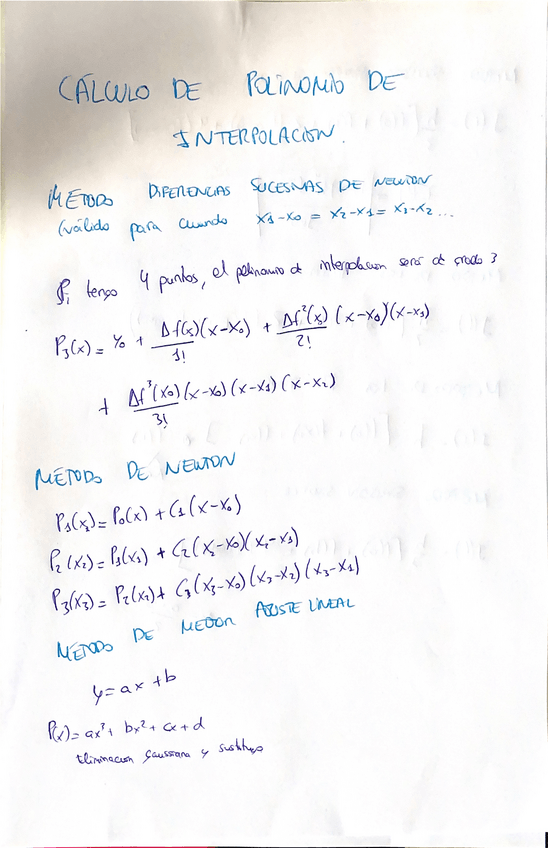 CÁLCULO DE POLINOMIO DE
INTERPOLACION.
MÉTODO DIFERENCIAS SUCESIVAS DE NEWTON
(válido para cuando x₁-x₀ = x₂-x₁ = x₃-x₂ ...
Si tengo 4 puntos, el polinomio de interpolacion será de grado 3
P₃(x) = y₀ + Δf(x₀)/1! (x-x₀) + Δf²(x₀)/2! (x-x₀)(x-x₁)
+ Δf³(x₀)/3! (x-x₀)(x-x₁)(x-x₂)
METODO DE NEWTON
P₁(x₁) = P₀(x) + C₁(x-x₀)
P₂(x₂) = P₁(x₁) + C₂(x₂-x₀)(x₂-x₁)
P₃(x₃) = P₂(x₃) + C₃(x₃-x₀)(x₃-x₂)(x₃-x₁)
METODO DE MEJOR AJUSTE LINEAL
y = ax + b
P(x) = ax³ + bx² + cx + d
Eliminacion Gaussiana y sustituyo